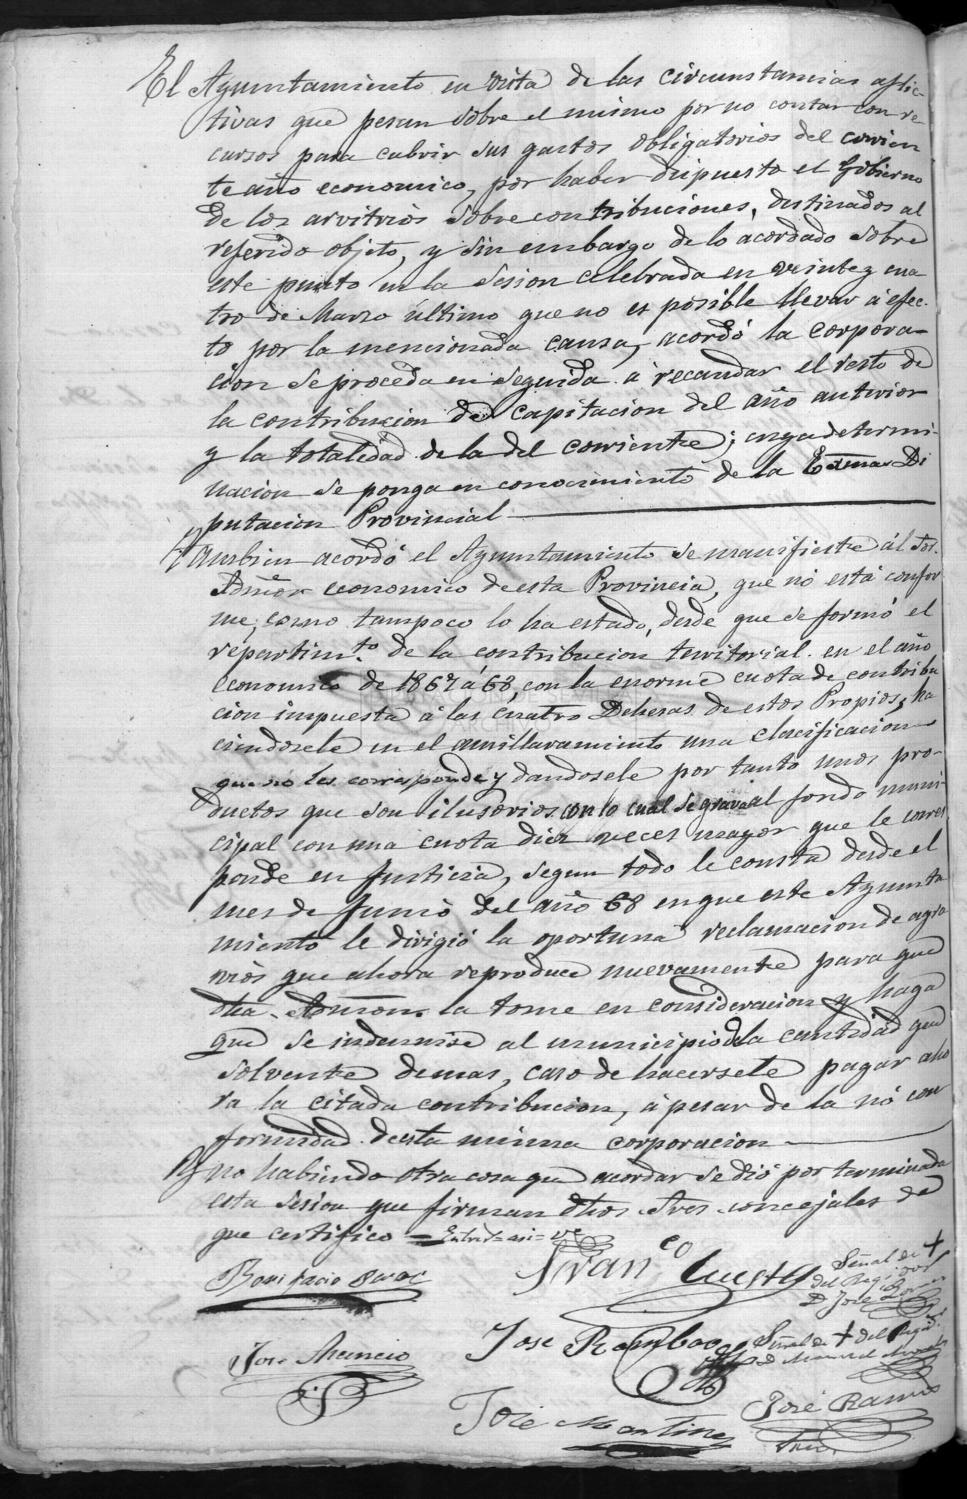 El Ayuntamiento en vista de las circunstancias aflic-
tivas que pesan sobre el mismo por no contar con re
cursos para cubrir sus gastos obligatorios del corrien
te año economico, por haber dispuesto el Gobierno
de los arvitrios sobre contribuciones, destinados al
referido objeto, y sin embargo de lo acordado sobre
este punto en la Sesion celebrada en veinte y cua
tro de Marzo último que no es posible llevar á efec-
to por la mencionada causa, acordó la corpora-
cion se proceda en seguida á recaudar el resto de
la contribucion de capitacion del año anterior
y la totalidad de la del corriente; cuya determi-
nacion se ponga en conocimiento de la Exma Di
putacion Provincial
Tambien acordó el Ayuntamiento se manifieste ál Sor.
Admor economico de esta Provincia, que nó está confor
me, como tampoco lo ha estado, desde que se formó el
repartimto. de la contribucion territorial en el año
economico de 1867 á 68, con la enorme cuota de contribu
cion impuesta á las cuatro Dehesas de estos Propios, ha
ciendosele en el amillaramiento una clasificacion
que no les corresponde y dandosele por tanto unos pro-
ductos que son ilusorios con lo cual se grava al fondo muni-
cipal con una cuota diez veces mayor que le corres
ponde en Justicia, segun todo le consta desde el
mes de Junio del año 68 en que este Ayunta
miento le dirigió la oportuna reclamacion de agra
vios que ahora reproduce nuevamente para que
dha. Admon. la tome en consideracion y haga
que se indemnise al municipio de la cantidad que
solvente demas, caso de hacersele pagar aho
ra la citada contribucion, á pesar de la nó con
formidad de esta misma corporacion
Y no habiendo otra cosa que acordar se dió por terminada
esta sesion que firman dhos Sres. concejales de
que certifico = Entre
Bonifacio
Franco Cuesta
Señal de +
del Regidor
D. José
José Asencio
José Rambao
Señal de + del Regidr.
D. Manuel
José Martinez
José Ramos